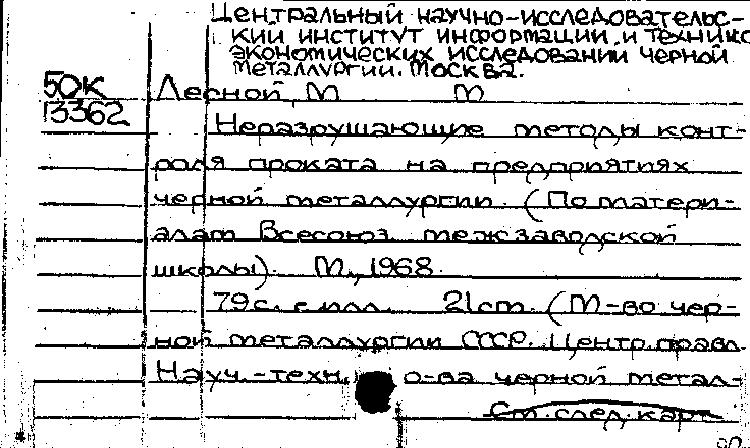 Центральный научно-исследовательс-
кий институт информации и технико
экономических исследований черной
металлургии. Москва.
50К
13362
Лесной, М М
Неразрушающие методы конт-
роля проката на предприятиях
черной металлургии. (По матери-
алам Всесоюз. межзаводской
школы). М., 1968.
79 с. с илл. 21 см. (М-во чер-
ной металлургии СССР. Центр. правл.
Науч.-техн. о-ва черной метал-
См. след. карт.